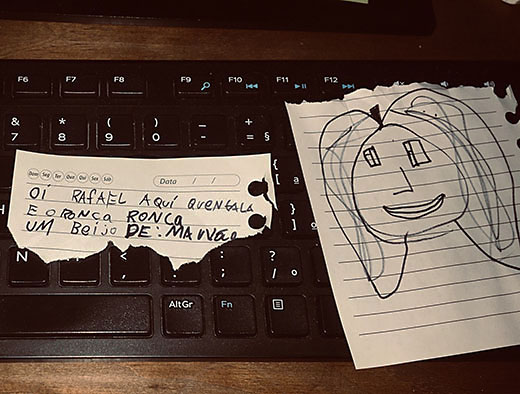 F6 F7 F8 F9 F10 F11 F12
& * ( ) _ +
7 8 9 0 - = §
Dom Seg Ter Qua Qui Sex Sáb
Data / /
OI RAFAEL AQUÍ QUENGALA
E O RONCA RONCA
UM BeiJo DE:
N < ? /
AltGr Fn